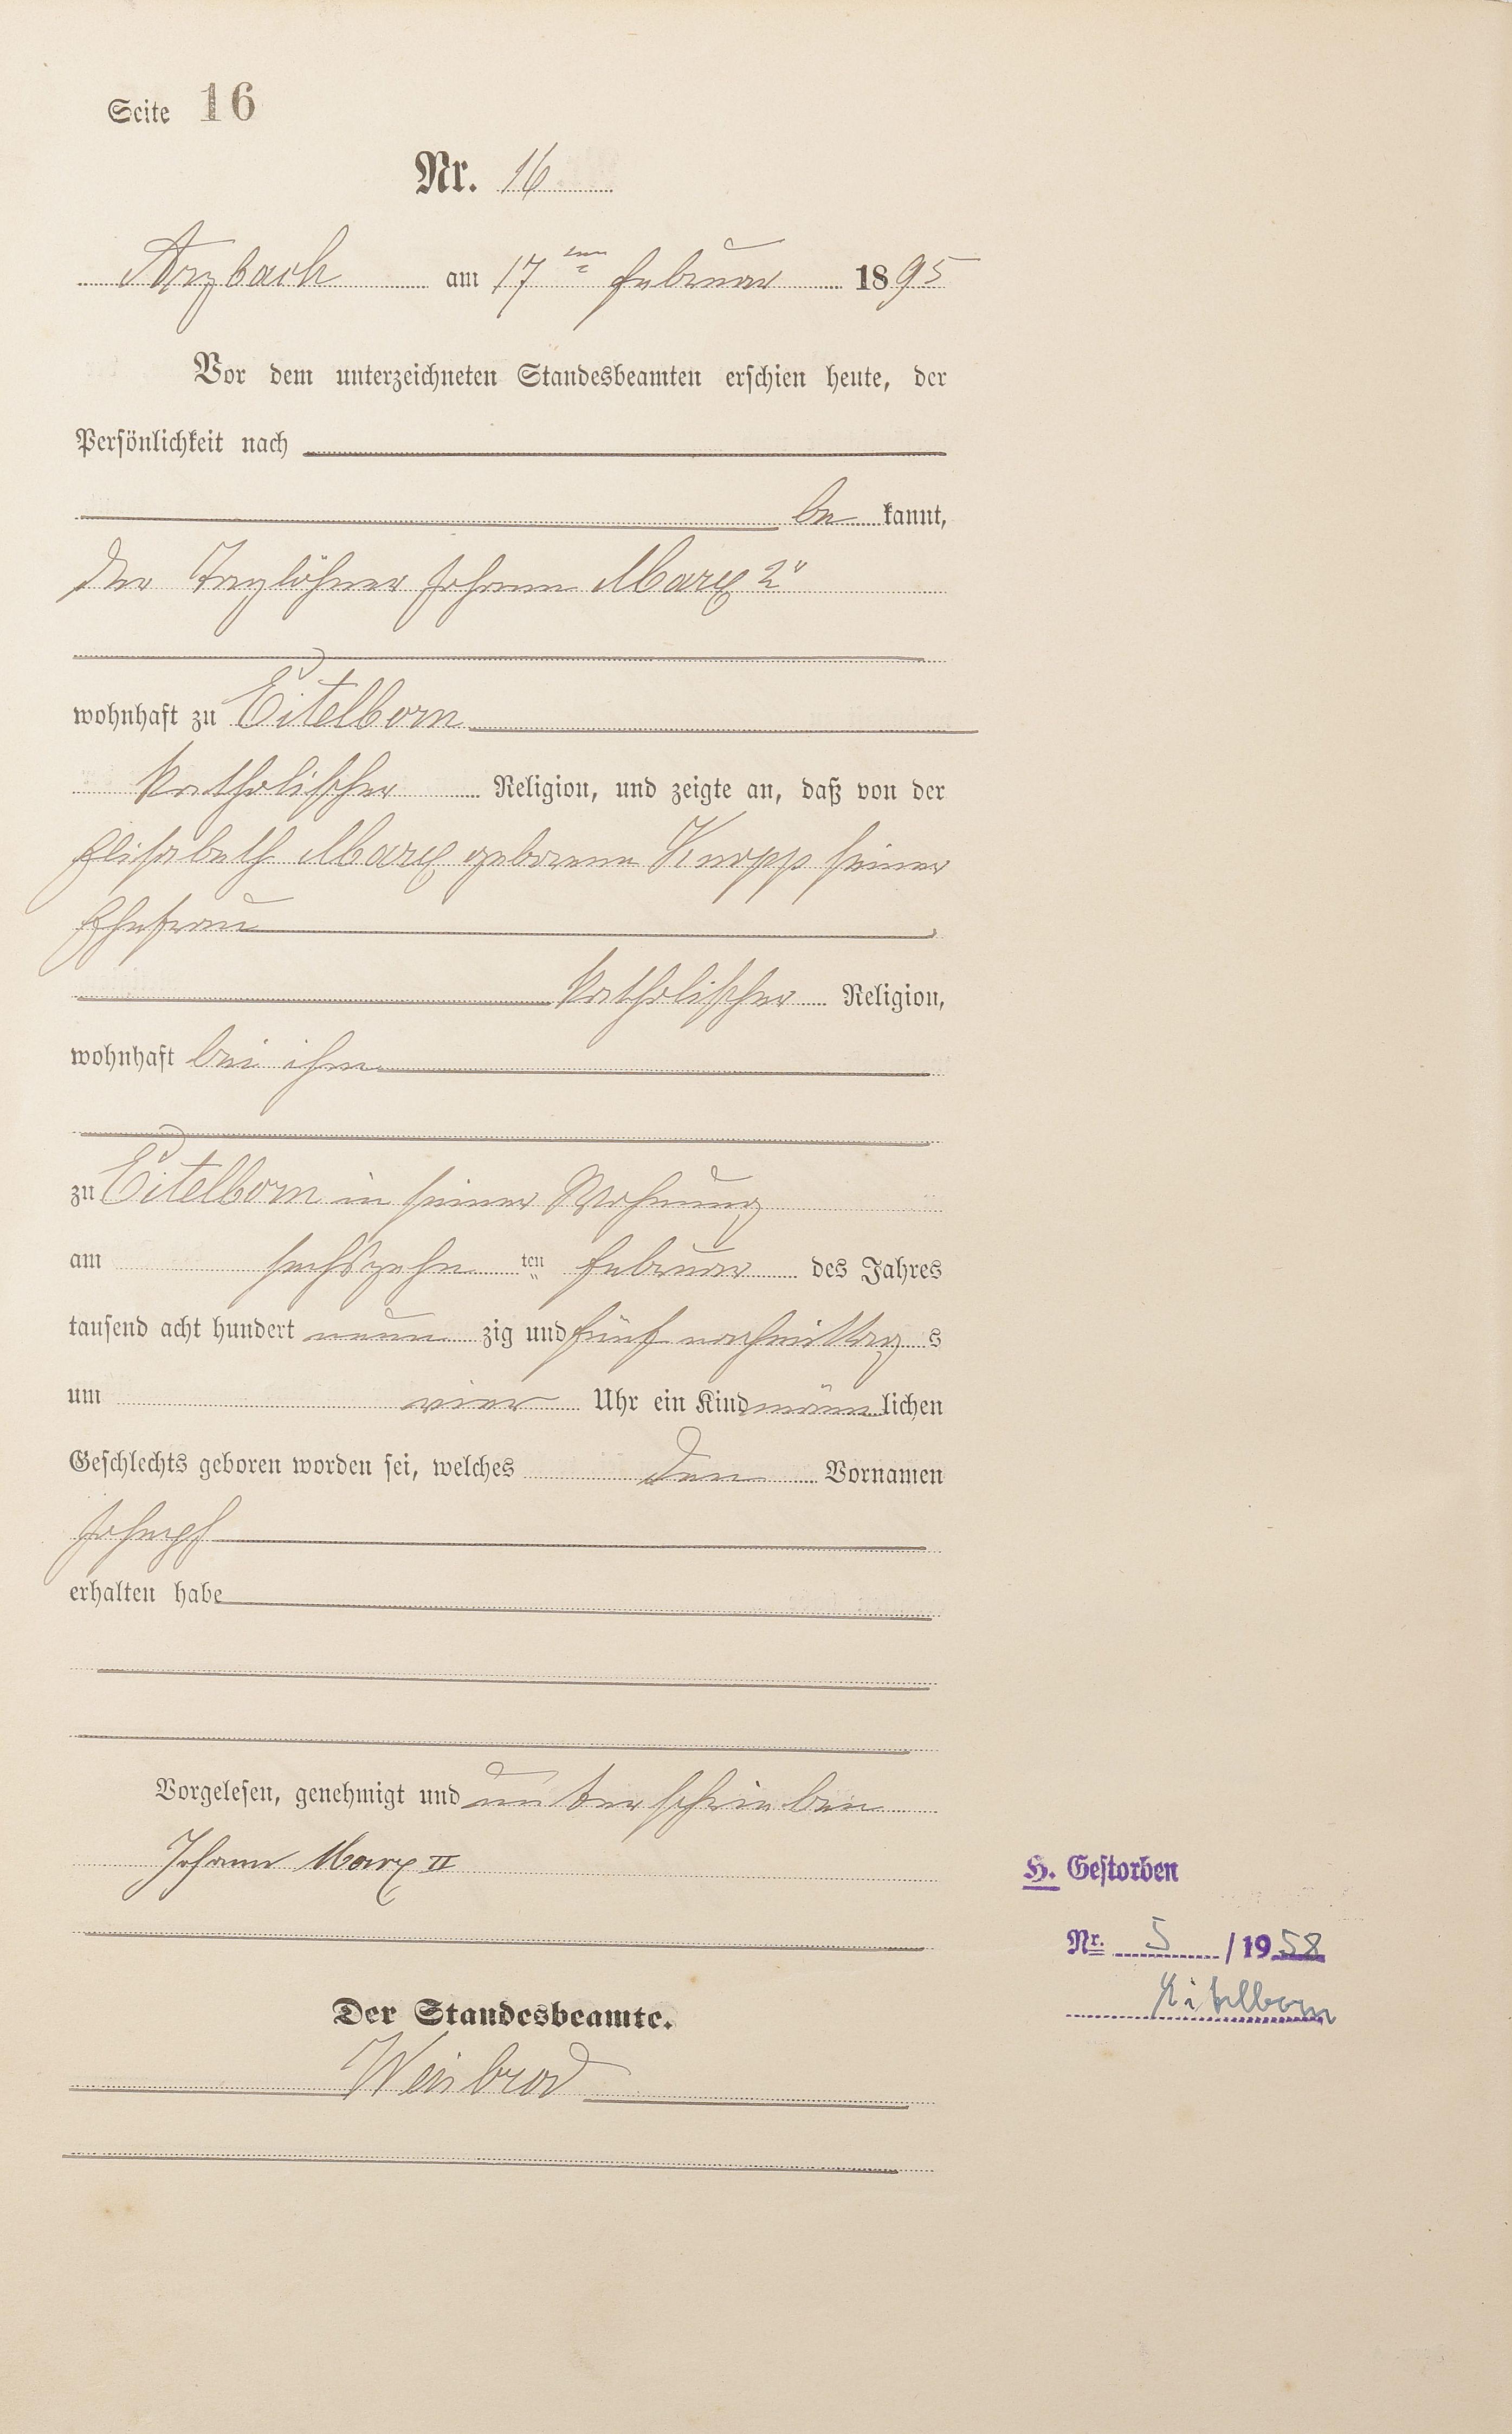 Seite 16
Nr. 16
Arzbach am 17ten Februar 1895
Vor dem unterzeichneten Standesbeamten erschien heute, der
Persönlichkeit nach
bekannt,
der Taglöhner Johann Marx 2r
wohnhaft zu Eitelborn
katholischer Religion, und zeigte an, daß von der
Elisabeth Marx geborene Knopp seiner
Ehefrau
katholischer Religion,
wohnhaft bei ihm
zu Eitelborn in seiner Wohnung
am sechszehnten Februar des Jahres
tausend acht hundert neunzig und fünf nachmittags
um vier Uhr ein Kind männlichen
Geschlechts geboren worden sei, welches den Vornamen
Joseph
erhalten habe
Vorgelesen, genehmigt und unterschrieben
Johann Marx II
Der Standesbeamte.
Weisbrod
H. Gestorben
Nr. 5/1958
Eitelborn